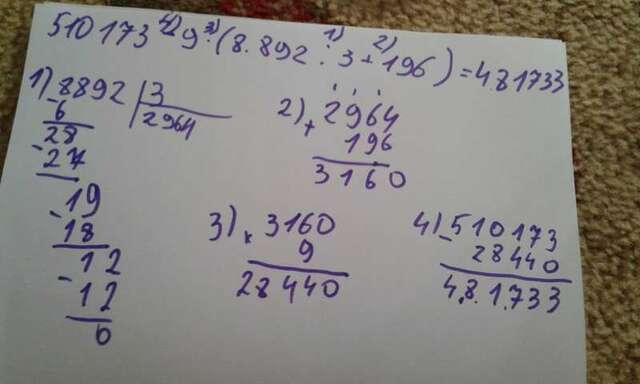 4) 3) 1) 2)
510173 - 9 · (8.892 : 3 + 196) = 481733
1) 8892 | 3
- 6 2964
28
- 27
19
- 18
12
- 12
0
2) 2964
+ 196
3160
3) 3160
× 9
28440
4) 510173
- 28440
4.8.1.733